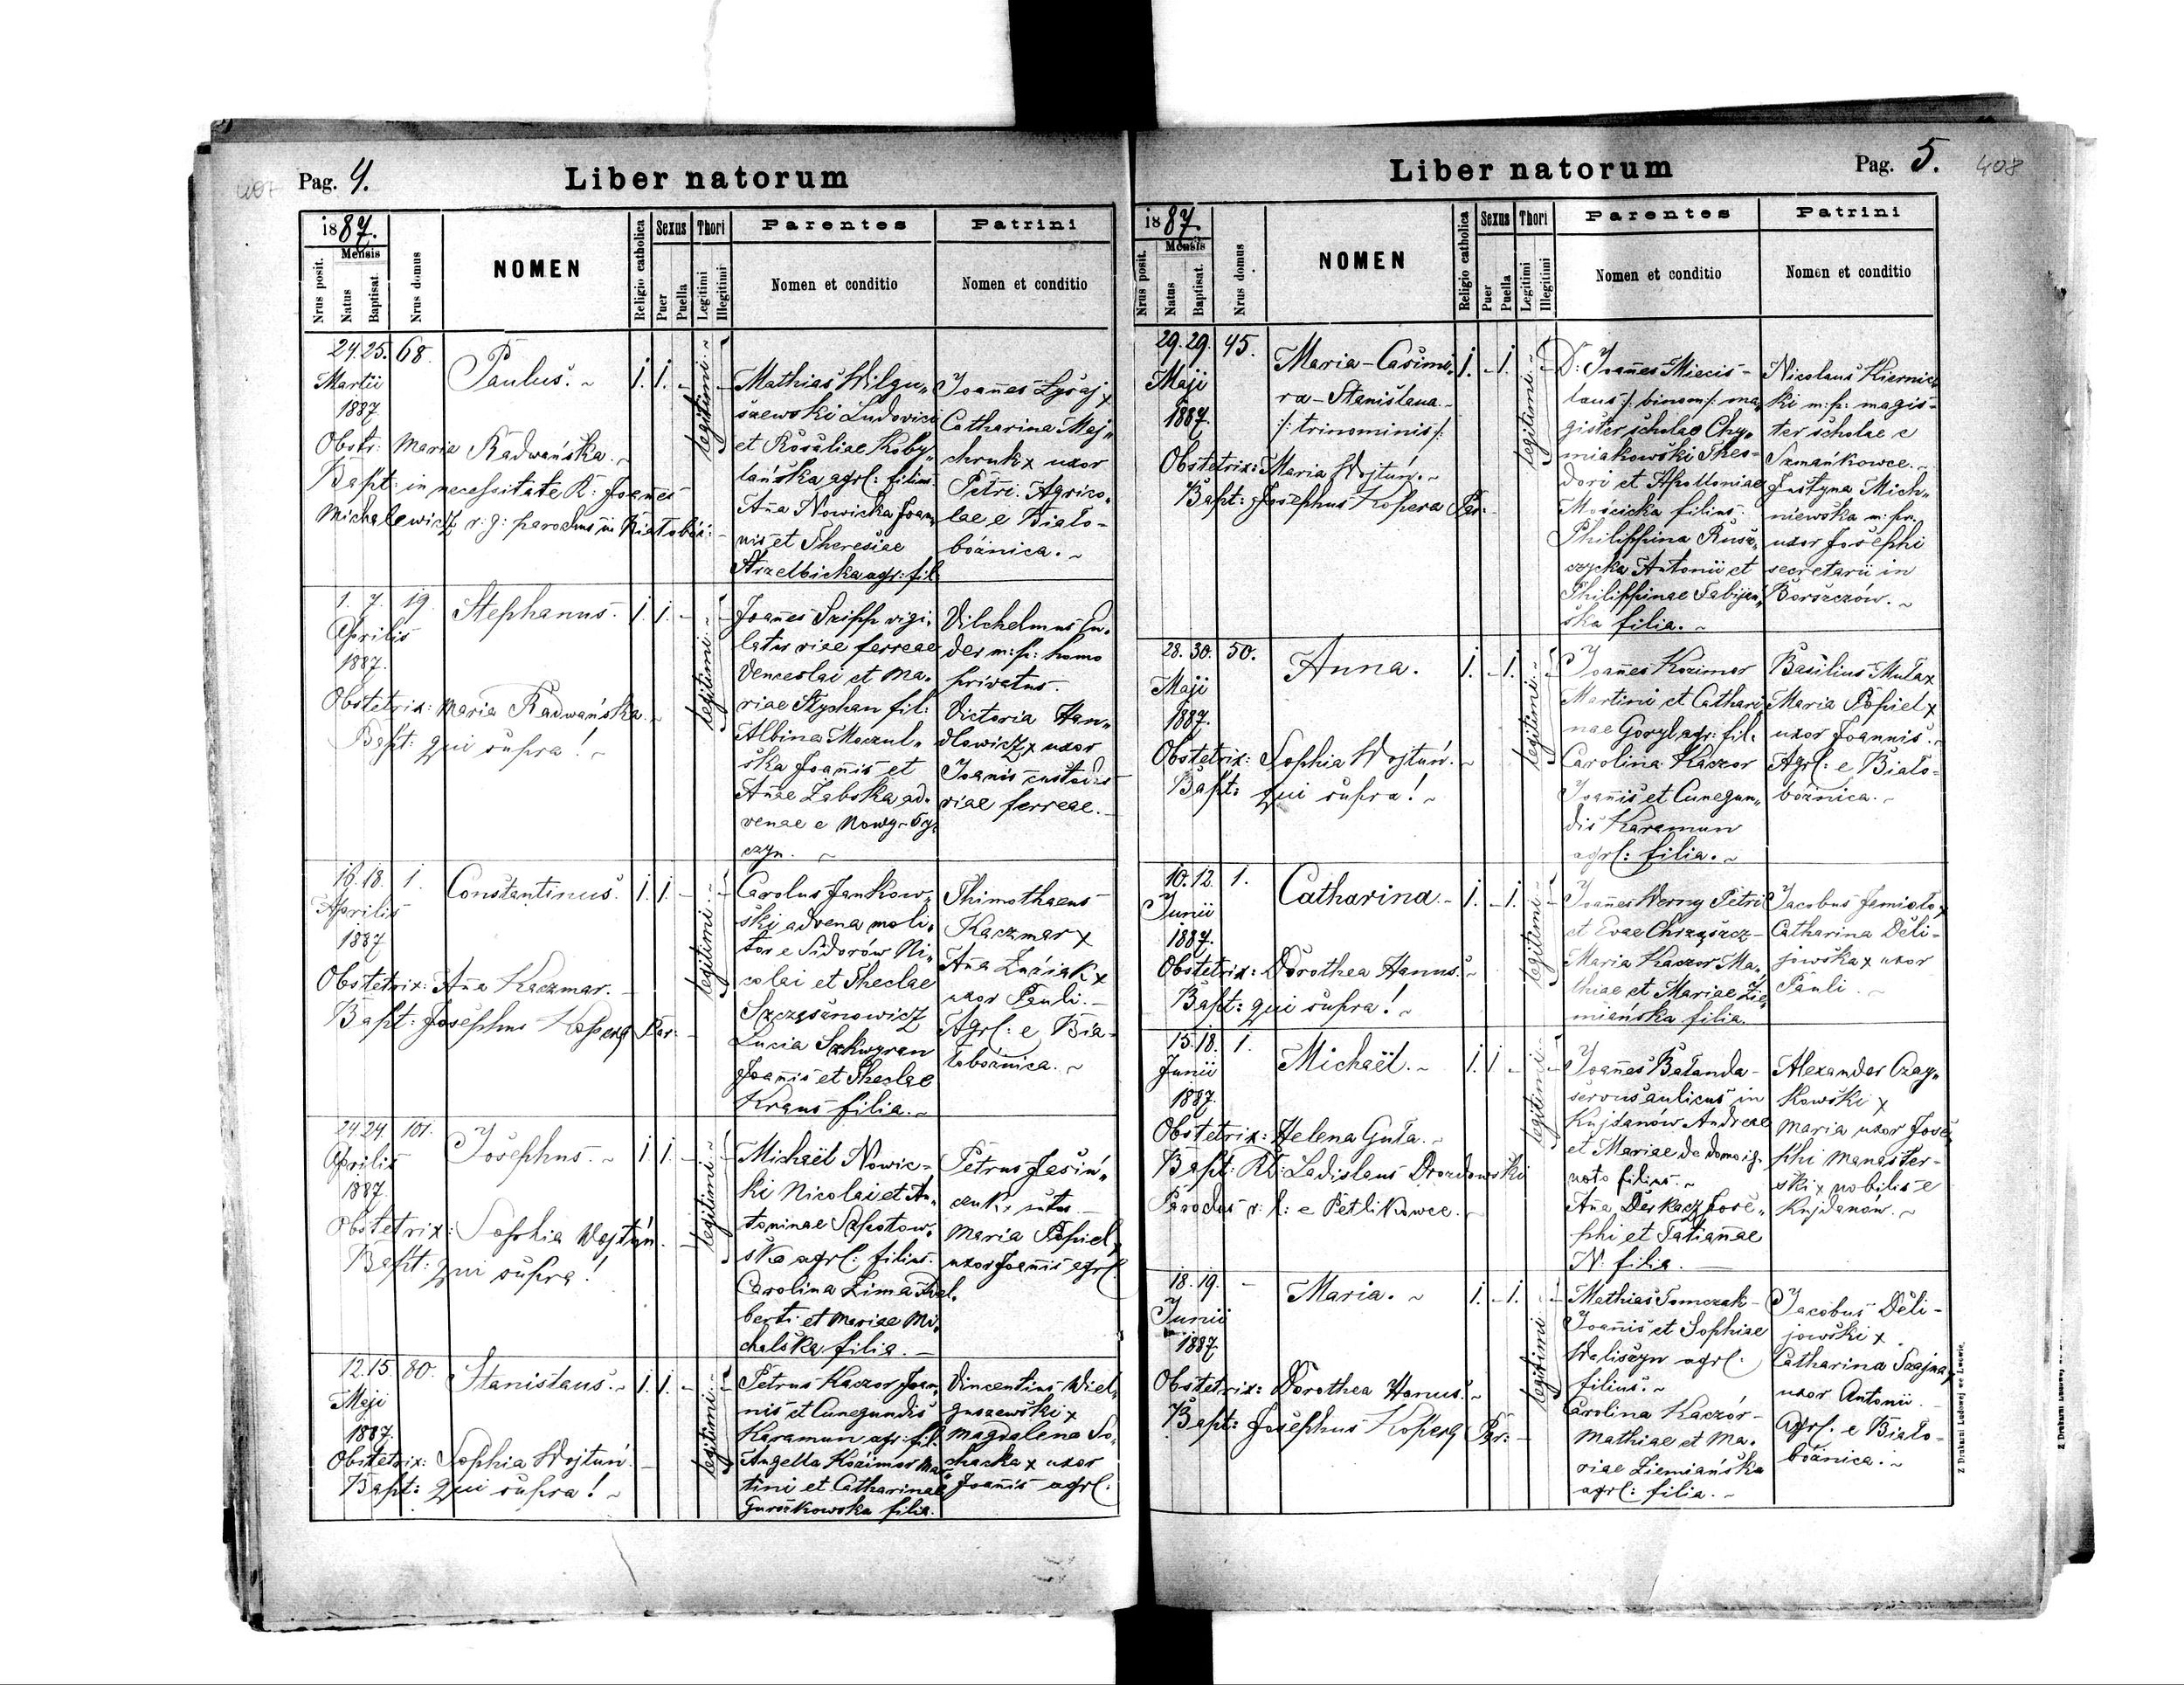 407
Pag. 4.
Liber natorum
1887.
Nrus posit.
Mensis
Natus
Baptisat.
Nrus domus
NOMEN
Religio catholica
Sexus
Puer
Puella
Thori
Legitimi
Illegitimi
Parentes
Nomen et conditio
Patrini
Nomen et conditio
24. 25. 68.
Martii
1887
Paulus. ~
1. 1. -
legitimi. ~
Obstr: Maria Radwańska. ~
Bapt: in necessitate R: Joannes
Michalewicz r: g: parochus in
Mathias Wilgu„
szewski Ludovici
et Rosaliae Koby„
lańska agrl: filius.
Anna Nowicka Joan„
nis et Theresiae
Strzelbicka agr: fil.
Joannes Łysaj x
Catharina Maj„
chruk x uxor
Petri. Agrico„
lae e Biało-
bożnica. ~
1. 7. 19.
Aprilis
1887.
Stephanus.
1. 1. -
legitimi. ~
Obstetrix: Maria Radwańska. ~
Bapt: qui supra! ~
Joannes Szipp vigi„
lator viae ferreae
Venceslai et Ma„
riae Stychan fil:
Albina Moczul„
ska Joannis et
Annae Żabska ad„
venae e Nowy-Ty„
czyn. ~
Vilchelmus En„
der m: p: homo
privatus.
Victoria Han„
dlowicz x uxor
Joanis custodis
viae ferreae. -
16. 18. 1.
Aprilis
1887
Constantinus.
1. 1. -
legitimi. ~
Obstetrix: Anna Kaczmar. -
Bapt: Josephus Kopera Par: -
Carolus Jankow„
ski advena moli„
tor e Sidorów Ni„
colai et Theclae
Szczęsnowicz
Lucia Szkwyran
Joannis et Theclae
Kraus filia. ~
Thimothaeus
Kaczmar x
Anna Łuciak x
uxor Pauli. -
Agrl: e Bia-
łobożnica. ~
24. 24. 101.
Aprilis
1887
Josephus. ~
1. 1. -
legitimi. ~
Obstetrix: Sophia Wojtuń.
Bapt: qui supra!
Michaël Nowic-
ki Nicolai et An„
toninae Szpotow„
ska agrl: filius.
Carolina Zima Adal„
berti et Mariae Mi„
chalska filia. -
Petrus Jasiń„
czuk, sutor -
Maria Popiel x
uxor Joannis agrl.
12. 15. 80.
Maji
1887.
Stanislaus. ~
1. 1. -
legitimi. ~
Obstetrix: Sophia Wojtuń. -
Bapt: qui supra! ~
Petrus Kaczor Joan„
nis et Cunegundis
Karamun agr: fil.
Angella Kozimor Mar„
tini et Catharinae
filia.
Vincentius Wiel„
guszewski x
Magdalena So„
chacka x uxor
Joannis agrl:
Liber natorum
Pag. 5.
408
1887.
Nrus posit.
Mensis
Natus
Baptisat.
Nrus domus
NOMEN
Religio catholica
Sexus
Puer
Puella
Thori
Legitimi
Illegitimi
Parentes
Nomen et conditio
Patrini
Nomen et conditio
29. 29. 45.
Maji
1887.
Maria-Casimi„
ra-Stanislava. ~
/: trinominis :/
1. - 1.
legitimi. ~
Obstetrix: Maria Wojtuń. ~
Bapt: Josephus Kopera Par: -
D: Joannes Miecis-
laus /: binom :/ ma„
gister scholae Chy„
miakowski Theo-
dori et Apolloniae
Mościcka filius.
Philippina Rusz„
czycka Antonii et
Philippinae Fabijan„
ska filia. ~
Nicolaus Kiernic„
ki m: p: magis-
ter scholae e
Szmańkowce. ~
Justyna Mich„
niewska m: p:
uxor Josephi
secretarii in
Borszczów. ~
28. 30. 50.
Maji
1887.
Anna.
1. - 1.
legitimi. ~
Obstetrix: Sophia Wojtuń. ~
Bapt: qui supra! ~
Joannes Kozimor
Martini et Cathari„
nae Goryl agr: fil.
Carolina Kaczor
Joannis et Cunegun„
dis Karamun
agrl: filia. ~
Basilius Muła x
Maria Popiel x
uxor Joannis. ~
Agrl: e Biało-
bożnica. ~
10. 12. 1.
Junii
1887.
Catharina. ~
1. - 1.
legitimi. ~
Obstetrix: Dorothea Hanus. ~
Bapt: qui supra! ~
Joannes Werny Petri
et Evae Chrząszcz-
Maria Kaczor Ma„
thiae et Mariae Zie„
miańska filia.
Jacobus Jemioło x
Catharina Deli-
jowska x uxor
Pauli. ~
15. 18. 1.
Junii
1887.
Michaël. ~
1. 1 -
legitimi. ~
Obstetrix: Helena Guła. ~
Bapt: Rd: Ladislaus Drozdowski
Parochus r: l: e Petlikowce. ~
Joannes Bałanda-
servus aulicus in
Kujdanów Andreae
et Mariae de domo ig„
noto filius. ~
Anna Derkacz Jose„
phi et Tatiannae
N. filia. -
Alexander Czay„
kowski x
Maria uxor Jose„
phi Manaster-
ski x nobilis e
Kujdanów. ~
18. 19. -
Junii
1887
Maria. ~
1. - 1.
legitimi
Obstetrix: Dorothea Hanus. ~
Bapt: Josephus Kopera Par: -
Mathias Tomczak-
Joannis et Sophiae
Waliszyn agrl:
filius. ~
Carolina Kaczór-
Mathiae et Ma„
riae Ziemiańska
agrl: filia. ~
Jacobus Deli-
jowski x
Catharina Szajna x
uxor Antonii
Agrl. e Biało-
bożnica. ~
Z Drukarni Ludowej we Lwowie.